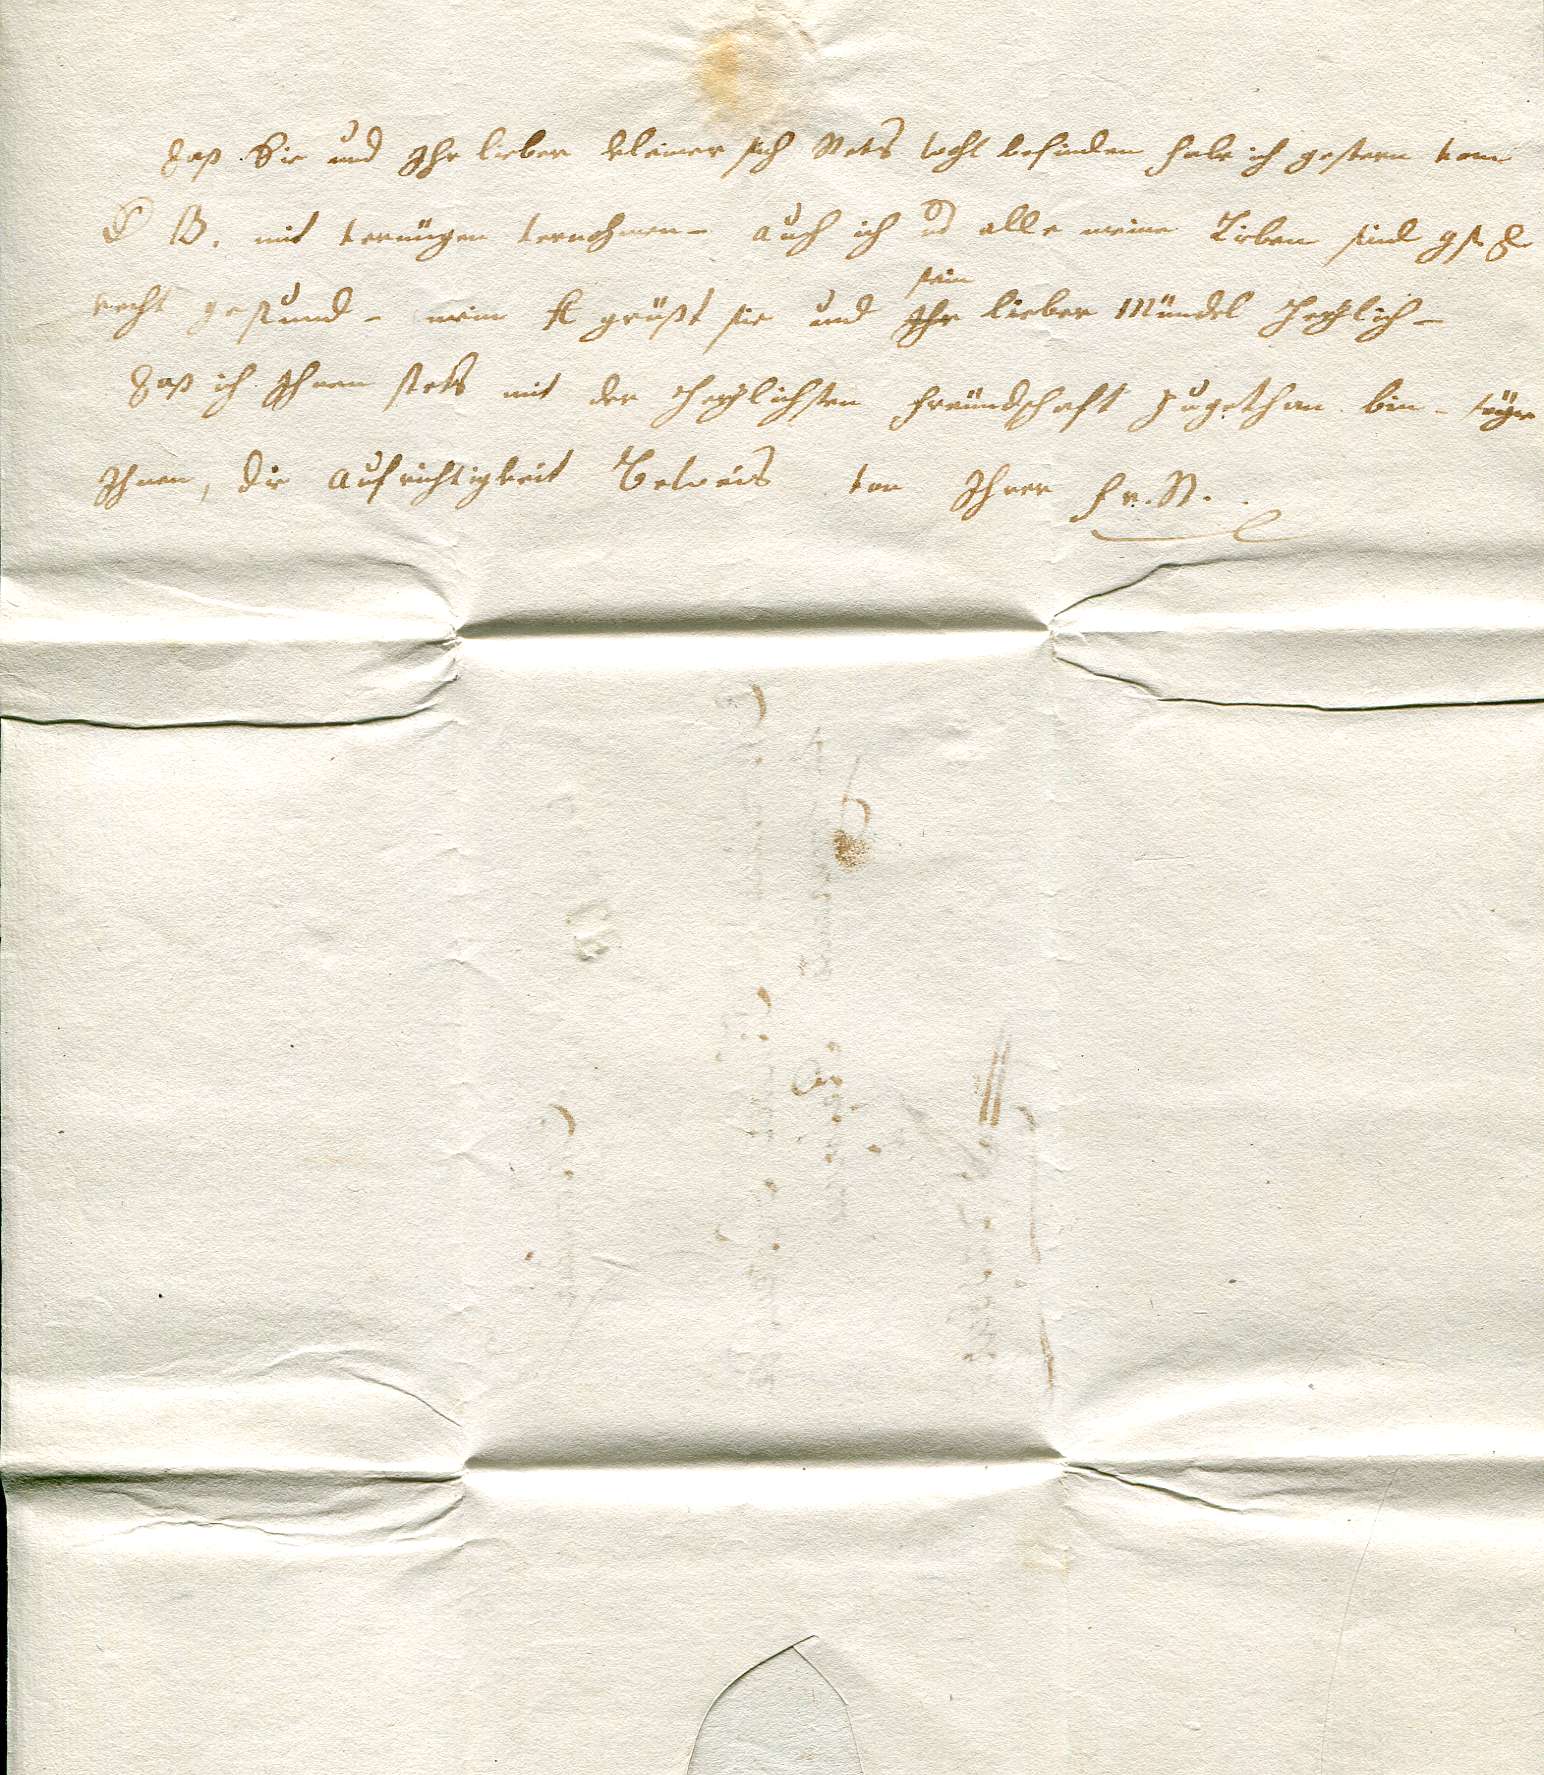 daß Sie und Ihr lieber kleiner sich stets wohl befinden habe ich gestern vom
H B. mit vernügen vernohmen – auch ich und alle meine Lieben sind
recht gesund – mein K grüßt sie und
sein
Ihr lieber Mündel hertzlich –
daß ich Ihnen stets mit der hertzlichsten freündschaft zugethan bin –
Ihnen, die aufrichtigkeit Beweis von Ihrer Fr. St.